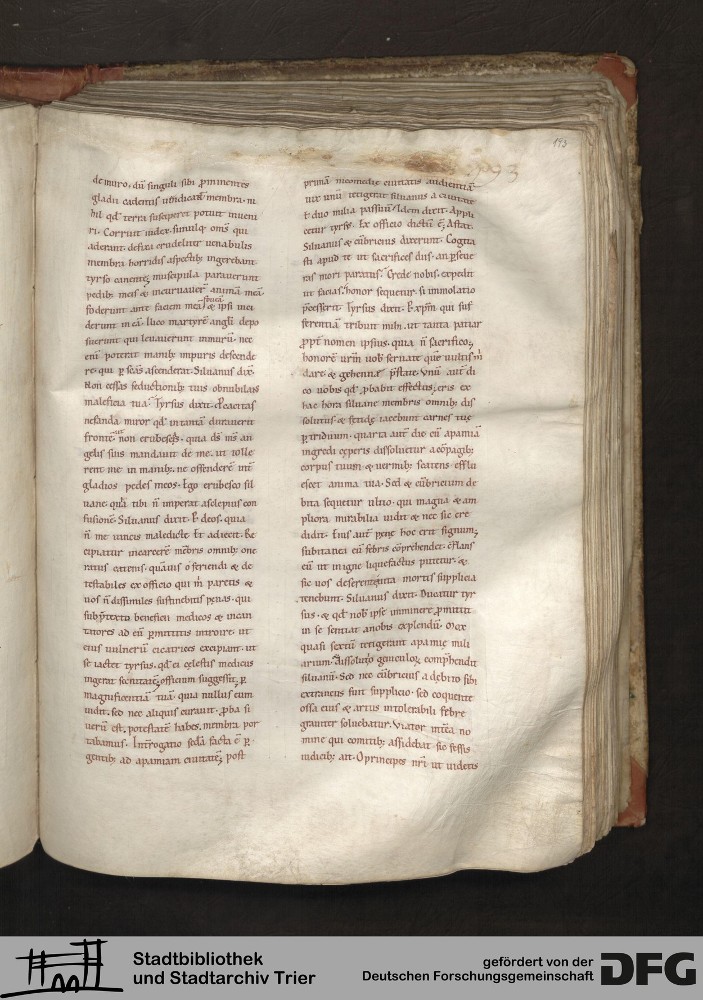 193
de muro. dū singuli sibi ꝓminentes
gladii cadentis uiſ membra. ni
hil qd' terra susceperat potuit inueni
ri. Corruit iudex. simulq; om̄s qui
aderant. defixi crudeliter uenabulis
membra horridis aspectib; ingerebant
tyrso canente; muscipula parauerunt
pedib; meis & incuruauer̄ animā meā
foderunt ante faciem meā foueā & ipsi inci
derunt in eā. Iuco martyrē angli depo
suerunt qui leuauerunt in murū. nec
enī poterat manib; impuris descende
re. qui ꝑ scās ascenderat. Siluanus dix̄.
Non cessas seductionib; tuis obnubilare
maleficia tua. Tyrsus dixit. O cecitas
nefanda miror qd' in tantā durauerit
frontē. ut non erubescas. quia ds̄ m̄s an
gelis suis mandauit de me. ut tolle
rent me in manib; ne offenderē int̄
gladios pedes meos. Ego erubesco sil
uane. quia tibi n̄ imperat asclepius con
fusionē. Siluanus dixit. P deos. quia
n̄ me uincis maledicte. Et adiecit. Re
cipiatur in carcerē mēbris omnib; one
ratus catenis. quāuis o feriendi & de
testabiles ex officio qui m̄ paretis &
uos n̄ dissimiles sustinebitis penas. qui
sub p̄textu beneficii medicos & incan
tatores ad eū ꝑmittitis introire. ut
eius uulnerū cicatrices excipiant. ut
se iactet tyrsus. qd' ei celestis medicus
ingerat sanitatē; officium suggessit. ꝑ
magnificentiā tuā. quia nullus eum
uidit. sed nec aliquis curauit. ꝓba si
uerū est. potestatē habes. membra por
tabamus. Interrogatio scda facta ē ꝑ
gentib; ad apamiam ciuitatē; post
193
primā nicomedie ciuitatis audientiā
uix unū tetigerat siluanus a ciuitate
& duo milia passuū. Idem dixit. Appli
cetur tyrsꝰ. Ex officio dictū ē. Astat.
Siluanus & cūbricius dixerunt. Cogita
sti apud te ut sacrifices diis. an ꝑseue
ras mori paratus. Crede nobis. expedit
ut facias. honor sequetur. si immolatio
p̄cesserit. Tyrsus dixit. P xp̄m qui suf
ferentiā tribuit mihi. ut tanta patiar
ꝓpt̄ nomen ipsius. quia n̄ sacrifico.
honorē urm̄ uob' seruate que uultis m
dare. & gehennā p̄stare. Vnū aut̄ di
co uobis qd' ꝓbabit effectus. eris ex
hac hora siluane membris omnib; dis
solutus & fetidę iacebunt carnes tuę
ꝑ triduum. quarta aut̄ die cū apamiā
ingredi ceperis dissoluetur a cōpagib;
corpus tuum. & uermib; scatens efflu
escet anima tua. Sed & cūbricium de
bita sequetur ultio. qui magna & am
pliora mirabilia uidit & nec sic cre
didit. Eius aut̄ pęnę hoc erit signum.
subitanea eū febris cōprehendet. & flans
eū ut in igne liquefactus putretur. &
sic uos deserentes uita mortis supplicia
tenebunt. Siluanus dixit. Ducatur tyr
sus. & qd' nob' ipse imminere ꝓmittit
in se sentiat a nobis explendū. Mox
quasi sextū tetigerant apamie mili
arium. dissolutio genuculor̄ comp̄hendit
siluanū. Sed nec cūbricius a debito sibi
extraneus fuit supplicio. sed coquente
ossa eius & artus intolerabili febre
grauiter soluebatur. Viator int̄ea no
mine qui comitib; assidebat sic fessis
iudicib; ait. O principes nr̄i ut uidetis
Stadtbibliothek
und Stadtarchiv Trier
gefördert von der
Deutschen Forschungsgemeinschaft
DFG